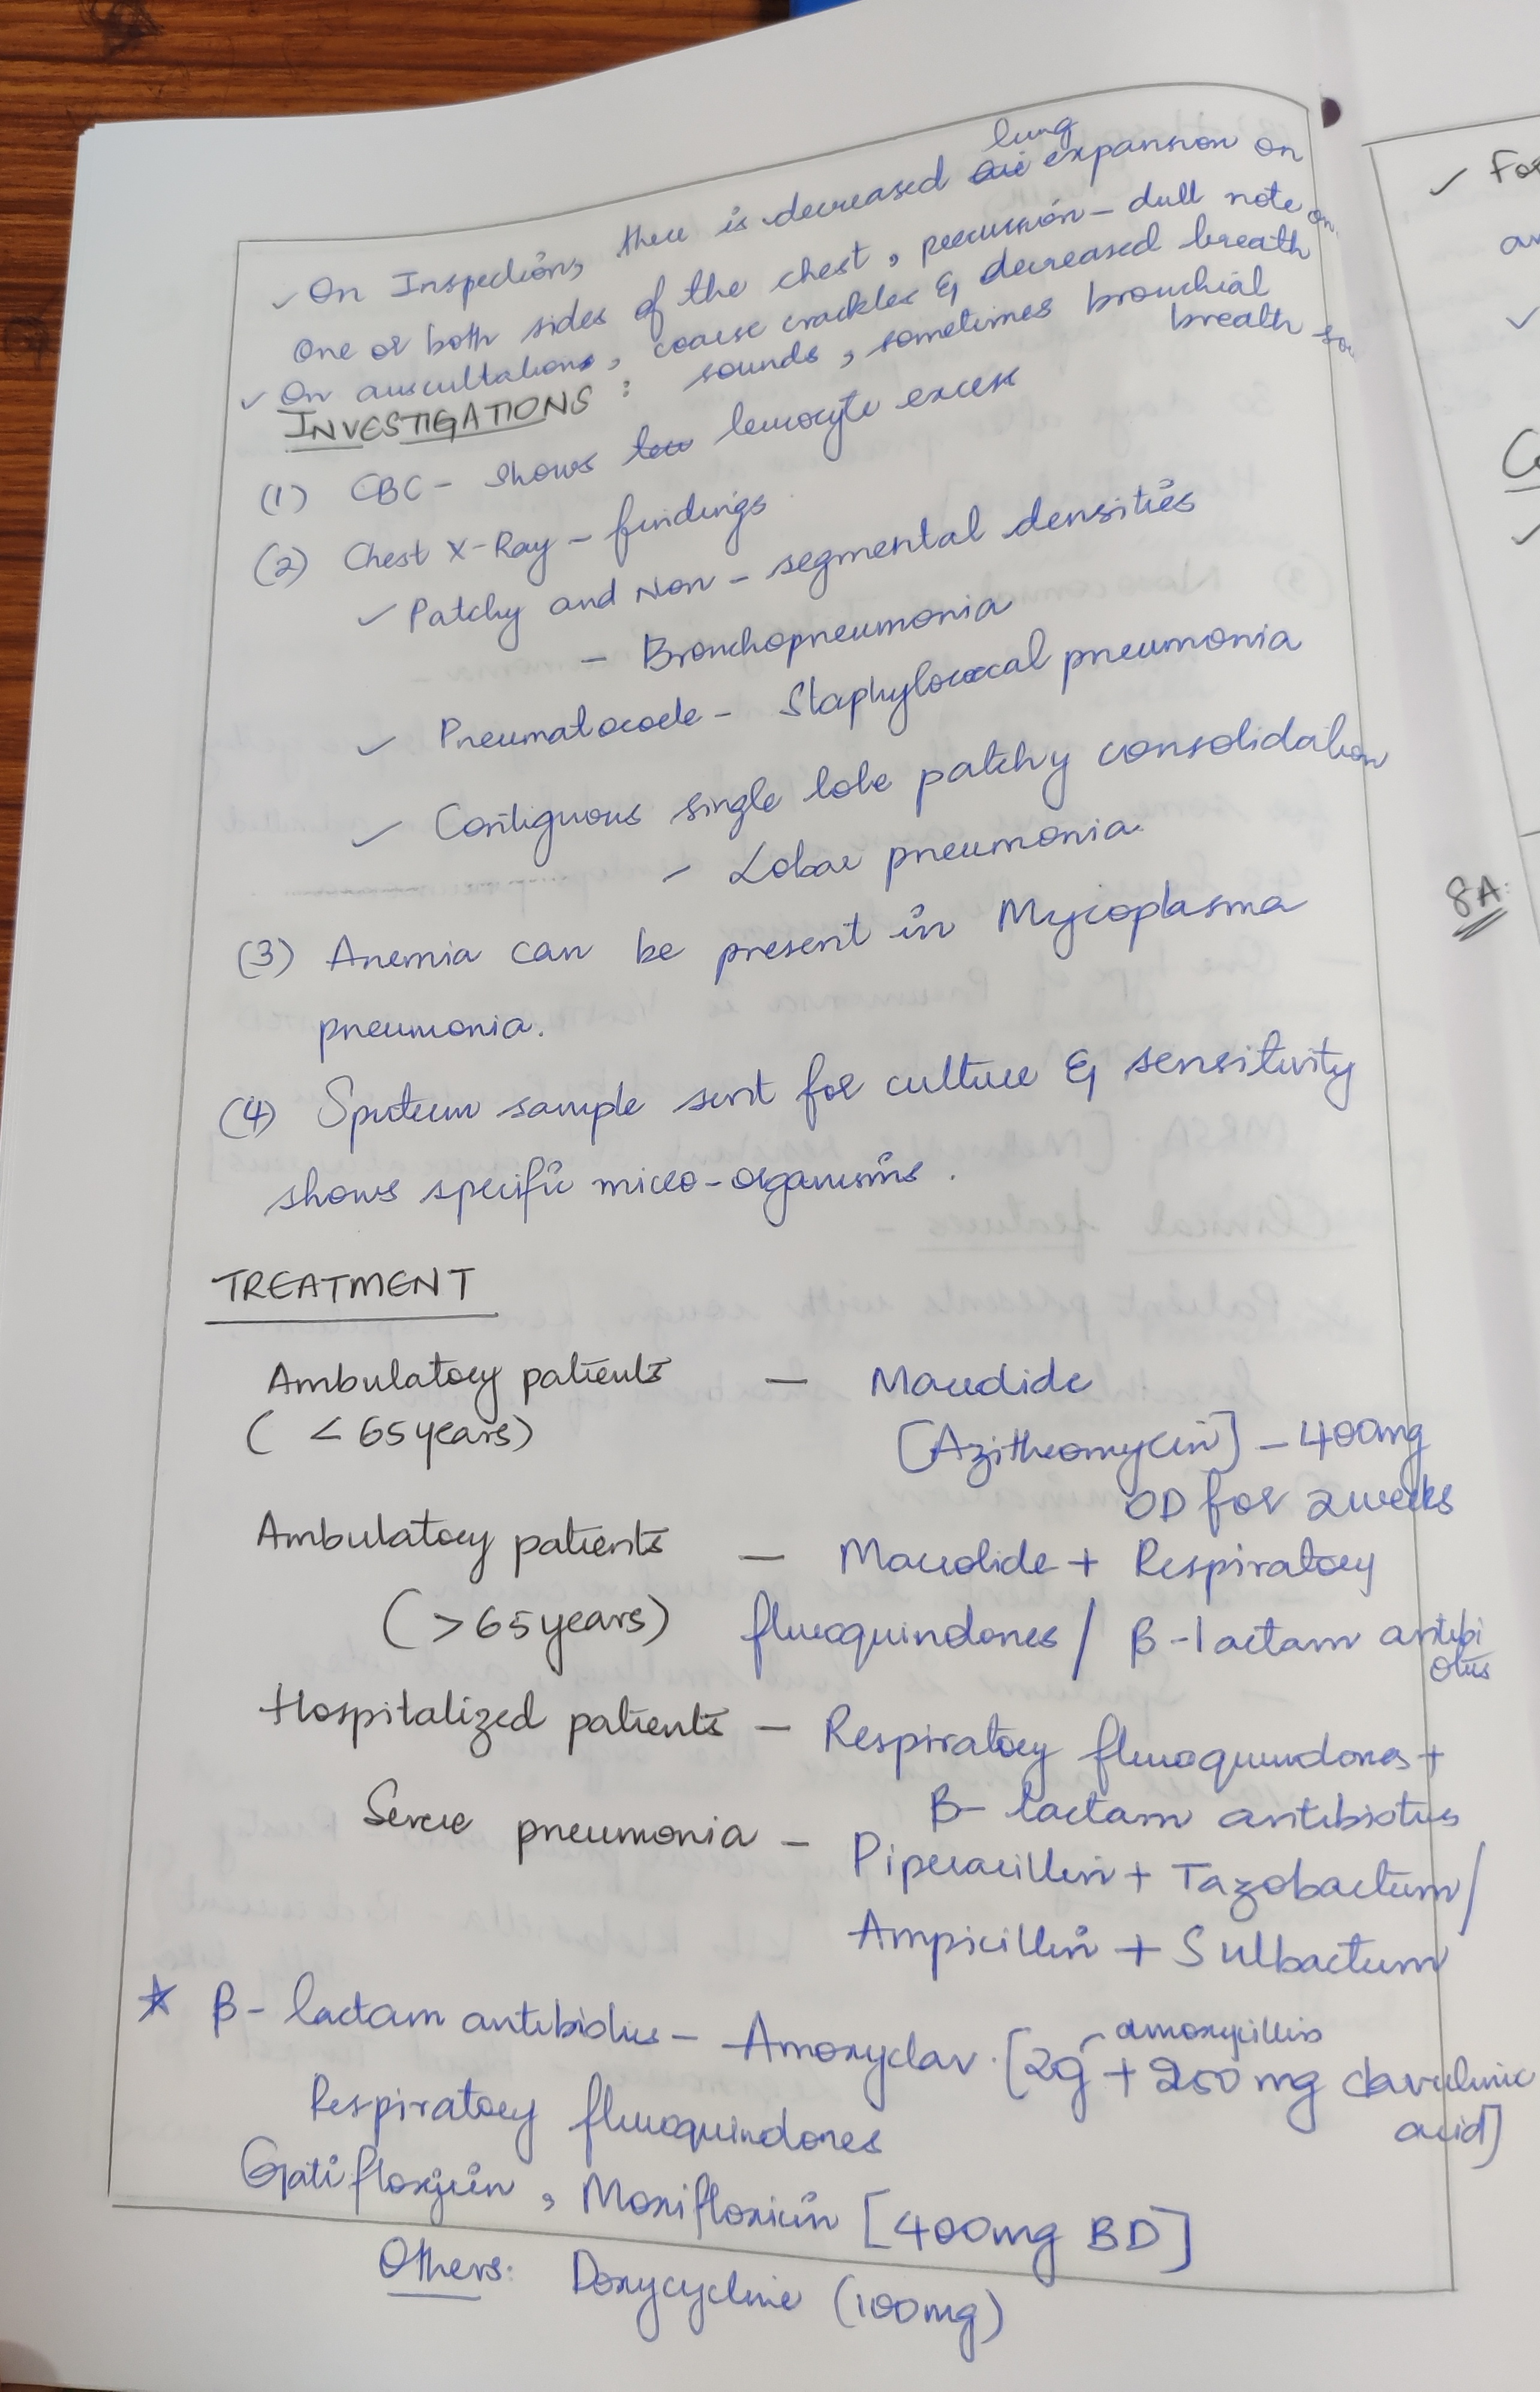 ✓ On Inspection, there is decreased lung expansion on
One or both sides of the chest, percussion - dull note on
✓ On auscultations, coarse crackles & decreased breath
sounds, sometimes bronchial
breath
INVESTIGATIONS :
(1) CBC - Shows leucocyte excess
(2) Chest X-Ray - findings
✓ Patchy and Non - segmental densities
- Bronchopneumonia
✓ Pneumatocoele - Staphylococcal pneumonia
✓ Contiguous single lobe patchy consolidation
- Lobar pneumonia
(3) Anemia can be present in Mycoplasma
pneumonia.
(4) Sputum sample sent for culture & sensitivity
shows specific micro-organisms.
TREATMENT
Ambulatory patients — Macrolide
( < 65 years) [Azithromycin] - 400mg
OD for 2 weeks
Ambulatory patients — Macrolide + Respiratory
(> 65 years) fluoroquinolones / β-lactam antibi
otics
Hospitalized patients — Respiratory fluoroquinolones +
β- lactam antibiotics
Severe pneumonia - Piperacillin + Tazobactum /
Ampicillin + Sulbactum
★ β- lactam antibiotics - Amoxyclav. [2g amoxycillin + 250 mg clavulinic
acid]
Respiratory fluoroquinolones
Gatifloxicin, Moxifloxicin [400mg BD]
Others: Doxycycline (100mg)
✓ Fo
✓
✓
8A: